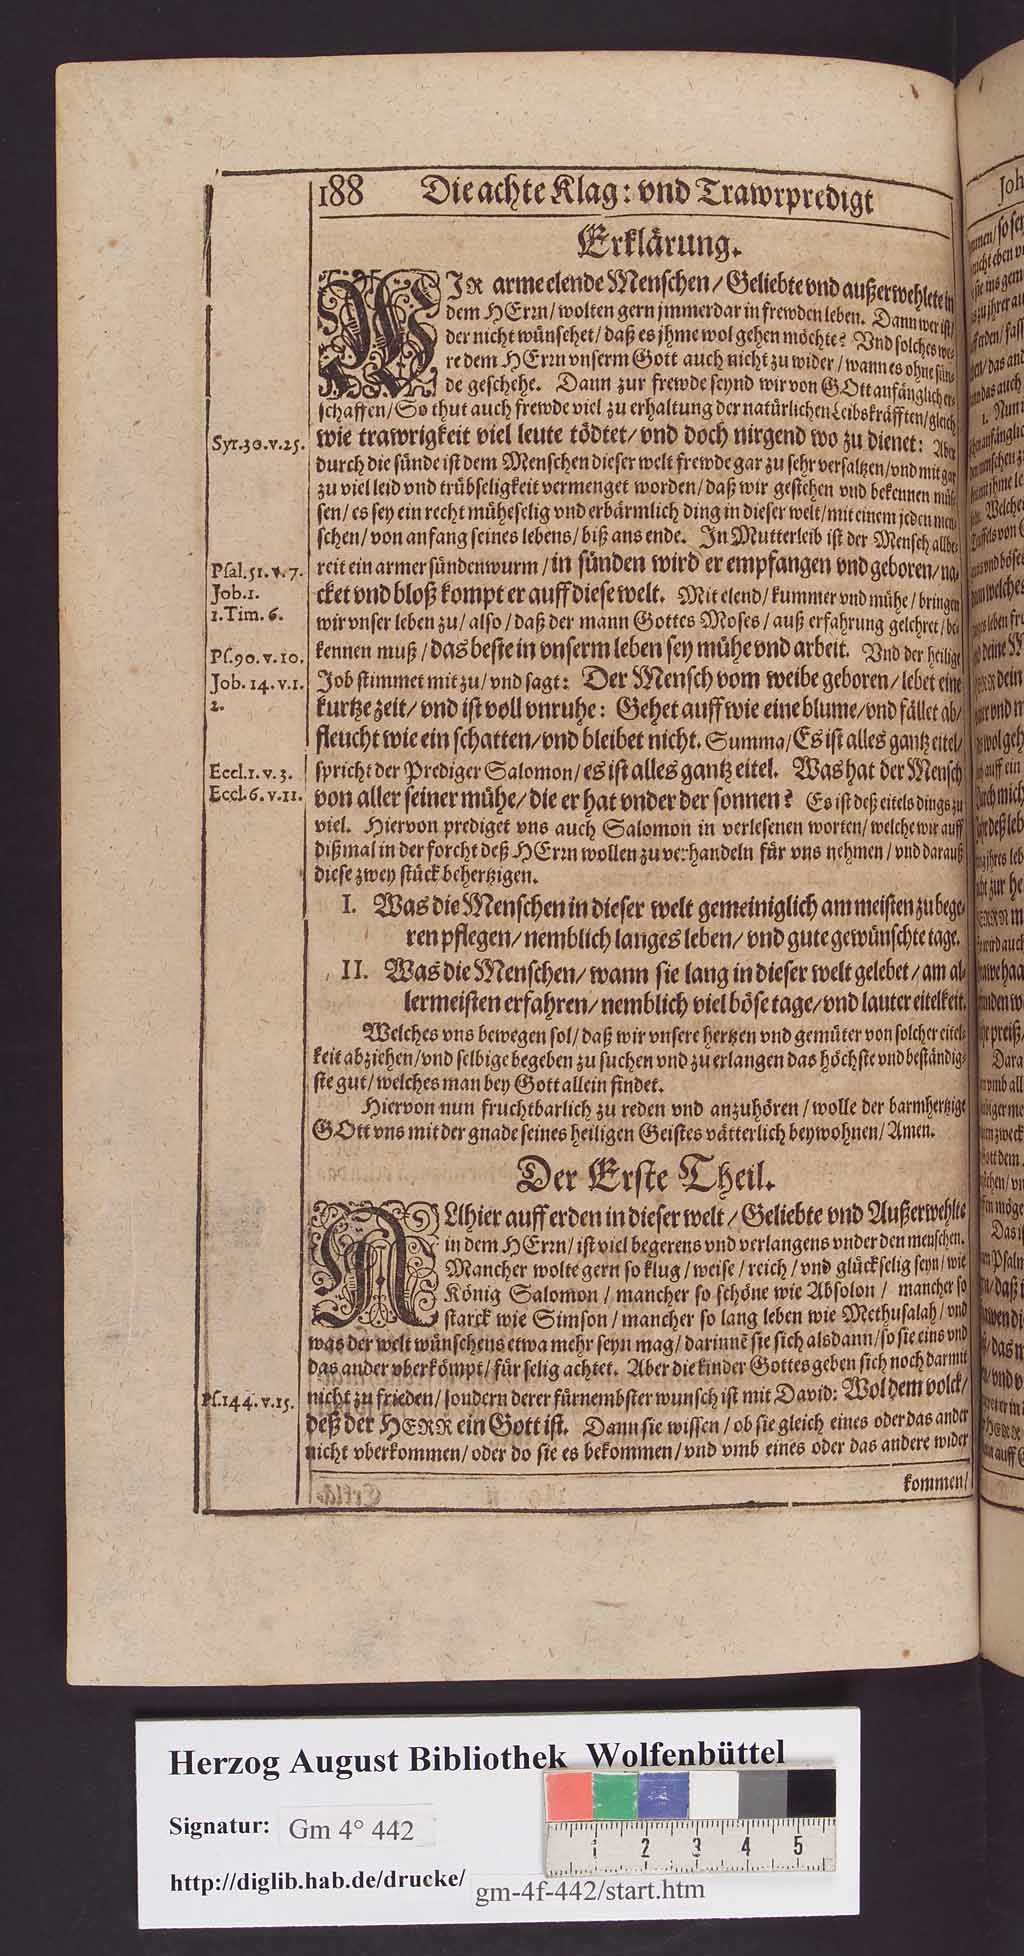 188 Die achte Klag: vnd Trawrpredigt
Erklärung.
WIR arme elende Menschen/ Geliebte vnd außerwehlete in
dem HErrn/ wolten gern jmmerdar in frewden leben. Dann wer ist/
der nicht wünschet/ daß es jhme wol gehen möchte? Vnd solches we-
re dem HErrn vnserm Gott auch nicht zu wider/ wann es ohne sün-
de geschehe. Dann zur frewde seynd wir von GOtt anfänglich er-
schaffen/ So thut auch frewde viel zu erhaltung der natürlichen Leibskräfften/ gleich
Syr.30.v.25. wie trawrigkeit viel leute tödtet/ vnd doch nirgend wo zu dienet: Aber
durch die sünde ist dem Menschen dieser welt frewde gar zu sehr versaltzen/ vnd mit gar
zu viel leid vnd trübseligkeit vermenget worden/ daß wir gestehen vnd bekennen müs-
sen/ es sey ein recht müheselig vnd erbärmlich ding in dieser welt/ mit einem jeden men-
schen/ von anfang seines lebens/ biß ans ende. In Mutterleib ist der Mensch allbe-
Psal.51.v.7. reit ein armer sündenwurm/ in sünden wird er empfangen vnd geboren/ na-
Job.1. cket vnd bloß kompt er auff diese welt. Mit elend/ kummer vnd mühe/ bringen
1.Tim.6. wir vnser leben zu/ also/ daß der mann Gottes Moses/ auß erfahrung gelehret/ be-
Ps.90.v.10. kennen muß/ das beste in vnserm leben sey mühe vnd arbeit. Vnd der heilige
Job.14.v.1. Job stimmet mit zu/ vnd sagt: Der Mensch vom weibe geboren/ lebet eine
2. kurtze zeit/ vnd ist voll vnruhe: Gehet auff wie eine blume/ vnd fället ab/
fleucht wie ein schatten/ vnd bleibet nicht. Summa/ Es ist alles gantz eitel/
Eccl.1.v.3. spricht der Prediger Salomon/ es ist alles gantz eitel. Was hat der Mensch
Eccl.6.v.11. von aller seiner mühe/ die er hat vnder der sonnen? Es ist deß eitels dings zu
viel. Hiervon prediget vns auch Salomon in verlesenen worten/ welche wir auff
dißmal in der forcht deß HErrn wollen zu verhandeln für vns nehmen/ vnd darauß
diese zwey stück behertzigen.
I. Was die Menschen in dieser welt gemeiniglich am meisten zu bege-
ren pflegen/ nemblich langes leben/ vnd gute gewünschte tage.
II. Was die Menschen/ wann sie lang in dieser welt gelebet/ am al-
lermeisten erfahren/ nemblich viel böse tage/ vnd lauter eitelkeit.
Welches vns bewegen sol/ daß wir vnsere hertzen vnd gemüter von solcher eitel-
keit abziehen/ vnd selbige begeben zu suchen vnd zu erlangen das höchste vnd beständig-
ste gut/ welches man bey Gott allein findet.
Hiervon nun fruchtbarlich zu reden vnd anzuhören/ wolle der barmhertzige
GOtt vns mit der gnade seines heiligen Geistes vätterlich beywohnen/ Amen.
Der Erste Theil.
ALlhier auff erden in dieser welt/ Geliebte vnd Außerwehlte
in dem HErrn/ ist viel begerens vnd verlangens vnder den menschen.
Mancher wolte gern so klug/ weise/ reich/ vnd glückselig seyn/ wie
König Salomon/ mancher so schöne wie Absolon/ mancher so
starck wie Simson/ mancher so lang leben wie Methusalah/ vnd
was der welt wünschens etwa mehr seyn mag/ darinnē sie sich alsdann/ so sie eins vnd
das ander vberkömpt/ für selig achtet. Aber die kinder Gottes geben sich noch darmit
Ps.144.v.15. nicht zu frieden/ sondern derer fürnembster wunsch ist mit David: Wol dem volck/
deß der HERR ein Gott ist. Dann sie wissen/ ob sie gleich eines oder das ander
nicht vberkommen/ oder do sie es bekommen/ vnd vmb eines oder das andere wider
kommen/
Herzog August Bibliothek Wolfenbüttel
Signatur: Gm 4° 442
http://diglib.hab.de/drucke/ gm-4f-442/start.htm
1 2 3 4 5